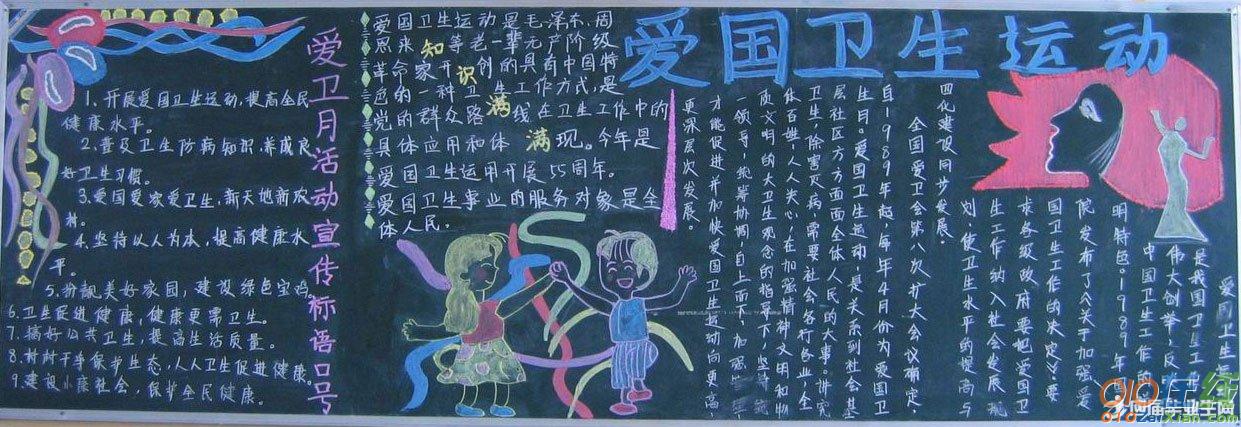 爱国卫生运动
爱卫月活动宣传标语口号
1、开展爱国卫生运动,提高全民
健康水平。
2、普及卫生防病知识,养成良
好卫生习惯。
3、爱国爱家爱卫生,新天地新农
村。
4、坚持以人为本,提高健康水
平。
5、扮靓美好家园,建设绿色宝鸡
6、卫生促进健康,健康更需卫生。
7、搞好公共卫生,提高生活质量。
8、村村干净保护生态,人人卫生促进健康。
9、建设小康社会,保护全民健康。
爱国卫生运动是毛泽东、周
恩来等老一辈无产阶级
革命家开创的具有中国特
色的一种卫生工作方式,是
党的群众路线在卫生工作中的
具体应用和体现。今年是
爱国卫生运用开展55周年。
爱国卫生事业的服务对象是全
体人民。
知识满满
爱国卫生运
是我国卫生工
伟大创举,反
中国卫生工作的
明特色。1989年国
院发布了《关于加强爱
国卫生工作的决定》要
求各级政府要把爱国卫
生工作纳入社会发展规
划,使卫生水平的提高与
四化建设同步发展。
全国爱卫会第八次扩大会议确定,
自1989年起,每年4月份为爱国卫
生月。爱国卫生运动,是关系到社会基
层社区方方面面全体人民的大事。讲究
卫生,除害灭病,需要社会各行各业,全
体百姓,人人关心,在加强精神文明和物
质文明的大卫生观念的指导下,坚持统
一领导,统筹协调,自上而下,加强
才能促进并加快爱国卫生运动向更高,
更深层次发展。
010在线
010ZaiXian.com
应届毕业生网